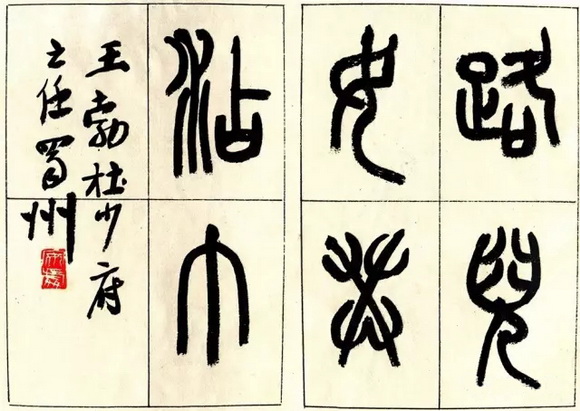 路兒
女共
沾巾
王勃杜少府
之任蜀州